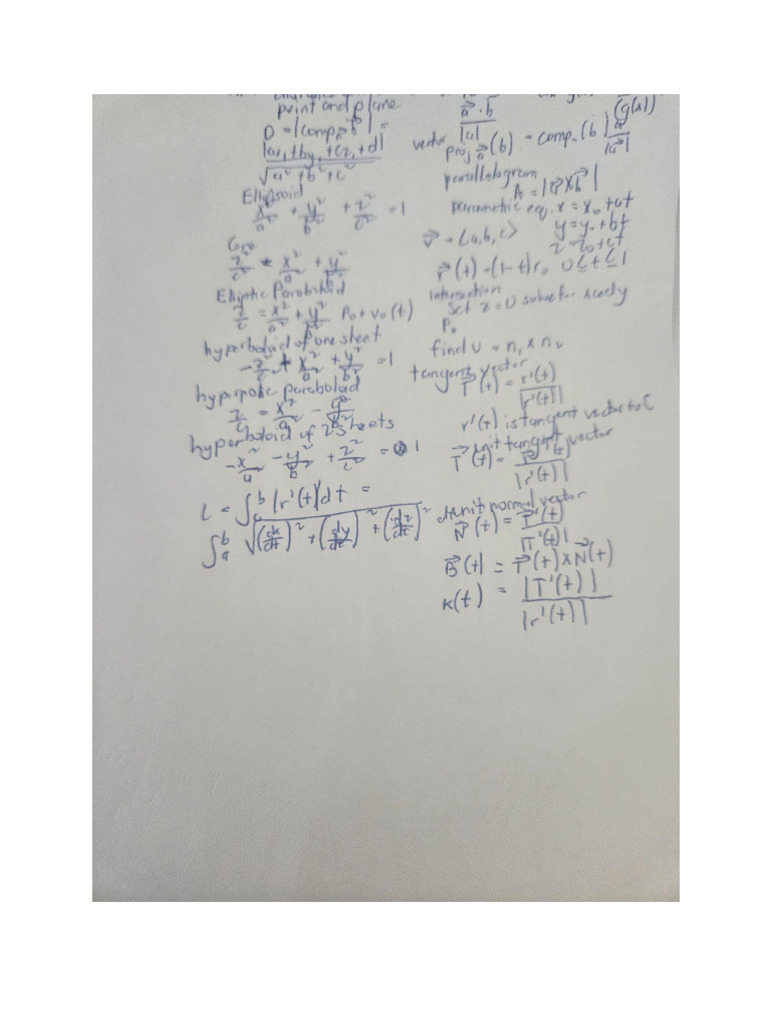 point and plane
D = |comp_n b| =
|ax₁ + by₁ + cz₁ + d|
√(a² + b² + c²)
Ellipsoid
x²/a² + y²/b² + z²/c² = 1
z²/c² = x²/a² + y²/b²
Elliptic Paraboloid
z/c = x²/a² + y²/b² P₀ + v₀(t)
hyperboloid of one sheet
-z²/c² + x²/a² + y²/b² = 1
hyperpolic paraboloid
z/c = x²/a² - y²/b²
hyperboloid of 2 sheets
-x²/a² - y²/b² + z²/c² = 1
L = ∫_a^b |r'(t)|dt =
∫_a^b √((dx/dt)² + (dy/dt)² + (dz/dt)²)
a⃗ · b⃗ / |a|
(g(x))
vector proj_a⃗(b) = comp_a(b) a⃗/|a⃗|
parallelogram
A = |a⃗ x b⃗|
parametric eq. x = x₀ + at
v⃗ = <a, b, c> y = y₀ + bt
z = z₀ + ct
r⃗(t) = (1 - t)r₀ 0 ≤ t ≤ 1
Intersection
Set z = 0 solve for x and y
P₀
find v = n₁ x n₂
tangent vector
T⃗(t) = r'(t)/|r'(t)|
r'(t) is tangent vector to C
unit tangent vector
T⃗(t) = r'(t)/|r'(t)|
unit normal vector
N⃗(t) = T⃗'(t)/|T'(t)|
B⃗(t) = T⃗(t) x N⃗(t)
κ(t) = |T'(t)|/|r'(t)|